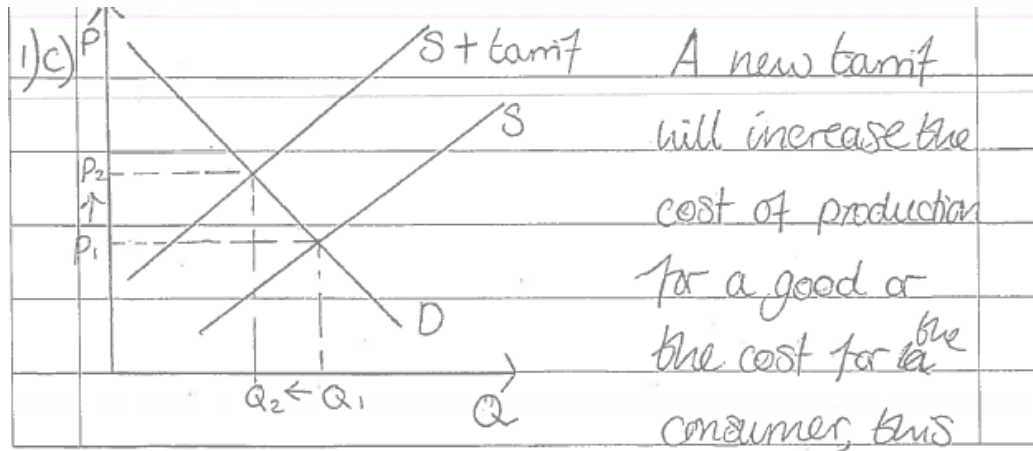 1)c)
P
S + tarrif
S
P2
↑
P1
D
Q2 ← Q1
Q
A new tarrif
will increase the
cost of production
for a good or
the cost for the
consumer, this